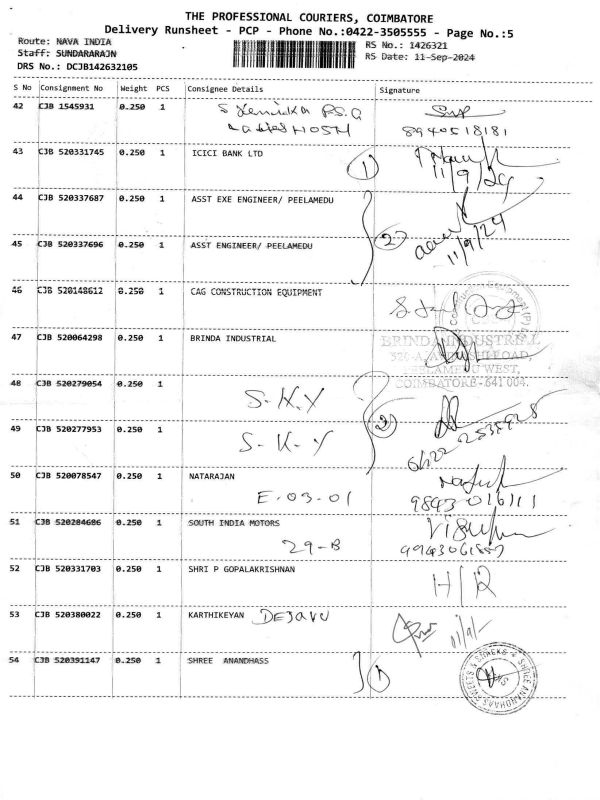 THE PROFESSIONAL COURIERS, COIMBATORE
Delivery Runsheet - PCP - Phone No.:0422-3505555 - Page No.:5
Route: NAVA INDIA
RS No.: 1426321
Staff: SUNDARARAJN
RS Date: 11-Sep-2024
DRS No.: DCJB142632105
S No Consignment No Weight PCS Consignee Details Signature
42 CJB 1545931 0.250 1
8940518181
43 CJB 520331745 0.250 1 ICICI BANK LTD
1
11/9/24
44 CJB 520337687 0.250 1 ASST EXE ENGINEER/ PEELAMEDU
2
11/9/24
45 CJB 520337696 0.250 1 ASST ENGINEER/ PEELAMEDU
46 CJB 520148612 0.250 1 CAG CONSTRUCTION EQUIPMENT
47 CJB 520064298 0.250 1 BRINDA INDUSTRIAL
BRINDA INDUSTRIAL
COIMBATORE - 641 004.
48 CJB 520279054 0.250 1 S.K.Y
2
49 CJB 520277953 0.250 1 S-K-Y
50 CJB 520078547 0.250 1 NATARAJAN
E.03.01
9843016111
51 CJB 520284686 0.250 1 SOUTH INDIA MOTORS
29-B
52 CJB 520331703 0.250 1 SHRI P GOPALAKRISHNAN
H/R
53 CJB 520380022 0.250 1 KARTHIKEYAN DEJAVU
11/9/-
54 CJB 520391147 0.250 1 SHREE ANANDHASS
1
SHREE ANANDHAAS SWEETS & SNACKS